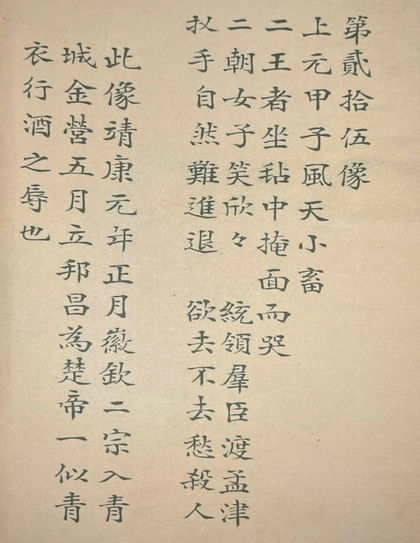 第貳拾伍像
上元甲子風天小畜
二王者坐毡中掩面而哭
二朝女子笑欣々　統領羣臣渡孟津
扠手自然難進退　欲去不去愁殺人
此像靖康元年正月徽欽二宗入青
城金營五月立邦昌為楚帝一似青
衣行酒之辱也